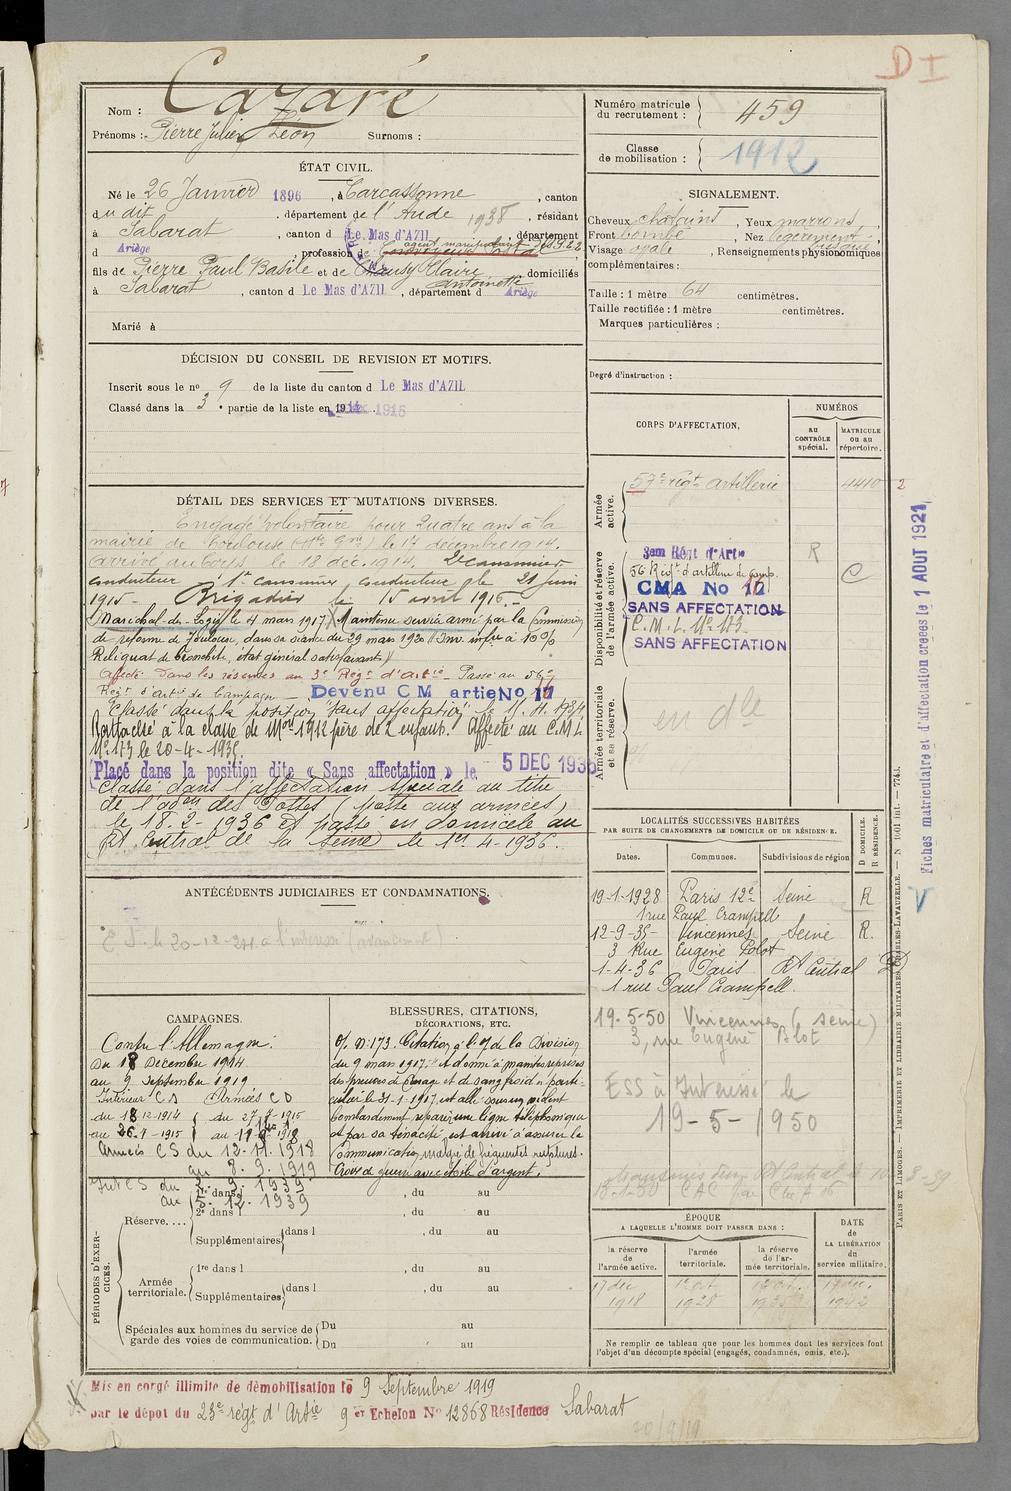 D I
Nom : Cazaré
Prénoms : Pierre Julien Léon Surnoms :
Numéro matricule du recrutement : 459
Classe de mobilisation : 1912
ÉTAT CIVIL.
Né le 26 Janvier 1896, à Carcassonne, canton
du dit, département de l'Aude 1938, résidant
à Sabarat, canton d Le Mas d'AZIL, département
d Ariège, profession de agent manipulant des
fils de Pierre Paul Basile et de Claire Antoinette domiciliés
à Sabarat, canton d Le Mas d'AZIL, département d Ariège
Marié à
SIGNALEMENT.
Cheveux châtains, Yeux marrons
Front bombé, Nez légèrement
Visage ovale, Renseignements physionomiques
complémentaires :
Taille : 1 mètre 64 centimètres.
Taille rectifiée : 1 mètre centimètres.
Marques particulières :
Degré d'instruction :
DÉCISION DU CONSEIL DE REVISION ET MOTIFS.
Inscrit sous le no 9 de la liste du canton d Le Mas d'AZIL
Classé dans la 3e partie de la liste en 1915
DÉTAIL DES SERVICES ET MUTATIONS DIVERSES.
Engagé volontaire pour quatre ans à la
mairie de Toulouse (Hte Gne) le 17 décembre 1914.
Arrivé au corps le 18 déc. 1914. 2e canonnier
conducteur 1er canonnier conducteur le 21 juin
1915 - Brigadier le 15 avril 1916 -
Maréchal-des-Logis le 4 mars 1917. Maintenu service armé par la Commission
de réforme de dans sa séance du 29 mars 1920 Inv. infre à 10 %
Reliquat de bronchite, état général satisfaisant
Affecté dans les réserves au 3e Régt d'Artie - Passé au 56e
Régt d'Artie de Campagne - Devenu C M artie No 17
Classé dans la position "sans affectation" le 11.11.1934
Rattaché à la classe de Mon 1912 père de 2 enfants. Affecté au C.M.I.
No 173 le 20-4-1935.
Placé dans la position dite « Sans affectation » le 5 DEC 1935
Classé dans l'affectation spéciale au titre
de l'adon des Postes (poste aux armées)
le 18-2-1936 et passé en domicile au
Rt Central de la Seine le 1er 4-1936.
CORPS D'AFFECTATION,
NUMÉROS
AU CONTRÔLE spécial.
MATRICULE ou au répertoire.
Armée active.
57e régt artillerie 4410 2
Disponibilité et réserve de l'armée active.
3em Régt d'Artie R
56 Régt d'artillerie de camp. C
CMA No 17
SANS AFFECTATION
C.M.I. No 173
SANS AFFECTATION
Armée territoriale et sa réserve.
en dle
Fiches matriculaire et d'affectation créées le 1 AOUT 1921
V
ANTÉCÉDENTS JUDICIAIRES ET CONDAMNATIONS.
LOCALITÉS SUCCESSIVES HABITÉES
PAR SUITE DE CHANGEMENTS DE DOMICILE OU DE RÉSIDENCE.
Dates. Communes. Subdivisions de région
D DOMICILE. R RÉSIDENCE.
19-1-1928 Paris 12e Seine R
1 rue Paul Crampell
12-9-35- Vincennes Seine R.
3 Rue Eugène Blot
1-4-36 Paris Rt Central D
1 rue Paul Crampell.
19-5-50 Vincennes (Seine)
3, rue Eugène Blot
ESS à Intéressé le
19-5-1950
CAMPAGNES.
Contre l'Allemagne :
Du 18 Décembre 1914
au 9 Septembre 1919
Intérieur CS Armées CD
du 18-12-1914 du 27-7-1915
au 26-7-1915 au 11 1918
Armées CS du 12-11-1918
au 8.9.1919
Int CS du 3. 9. 1939
au 5. 12. 1939
BLESSURES, CITATIONS, DÉCORATIONS, ETC.
O/ No 173. Citation à l'O/ de la Division
du 9 mars 1917. "A donné à maintes reprises
des preuves de courage et de sang froid en parti-
culier le 31-1-1917 est allé sous un violent
bombardement réparer une ligne téléphonique
et par sa ténacité est arrivé à assurer la
communication malgré de fréquentes ruptures.
Croix de guerre avec étoile d'argent.
PÉRIODES D'EXERCICES.
Réserve....
1re dans l , du au
2e dans l , du au
Supplémentaires dans l , du au
Armée territoriale.
1re dans l , du au
Supplémentaires dans l , du au
Spéciales aux hommes du service de garde des voies de communication.
Du au
Du au
ÉPOQUE
A LAQUELLE L'HOMME DOIT PASSER DANS :
la réserve de l'armée active.
l'armée territoriale.
la réserve de l'armée territoriale.
DATE de LA LIBÉRATION du service militaire.
17 déc 1918
1er oct 1928
17 déc. 1942
Ne remplir ce tableau que pour les hommes dont les services font
l'objet d'un décompte spécial (engagés, condamnés, omis, etc.).
PARIS ET LIMOGES. — IMPRIMERIE ET LIBRAIRIE MILITAIRES CHARLES-LAVAUZELLE. — N 1001 Int. — 7743.
Mis en congé illimité de démobilisation le 9 Septembre 1919
par le dépôt du 23e régt d'Artie 9 er Echelon No 12868 Résidence Sabarat
20/9/19